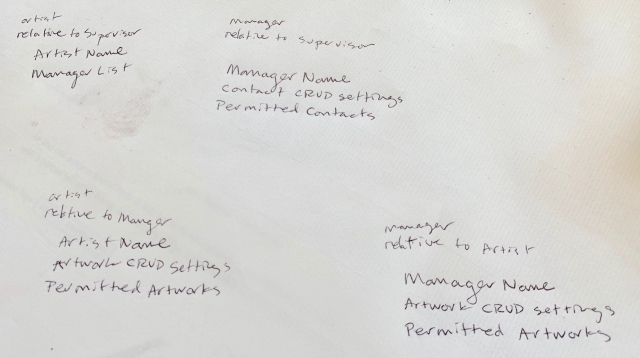 artist
relative to Supervisor
Artist Name
Manager List
manager
relative to supervisor
Manager Name
Contact CRUD settings
Permitted Contacts
artist
reltive to Manger
Artist Name
Artwork CRUD Settings
Permitted Artworks
manager
relative to Artist
Manager Name
Artwork CRUD settings
Permitted Artworks